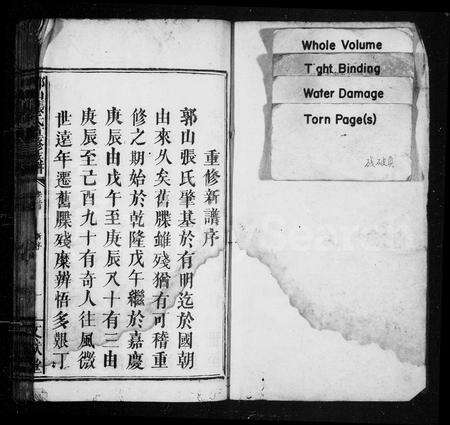 重修新譜序
郭山張氏肇基於有明迄於國朝
由來久矣舊牒雖殘猶有可稽重
修之期始於乾隆戊午繼於嘉慶
庚辰由戊午至庚辰又十有三由
庚辰至己酉九十有奇人往風微
世遠年遷舊牒殘糜辨悟多艱丁
Whole Volume
Tight Binding
Water Damage
Torn Page(s)